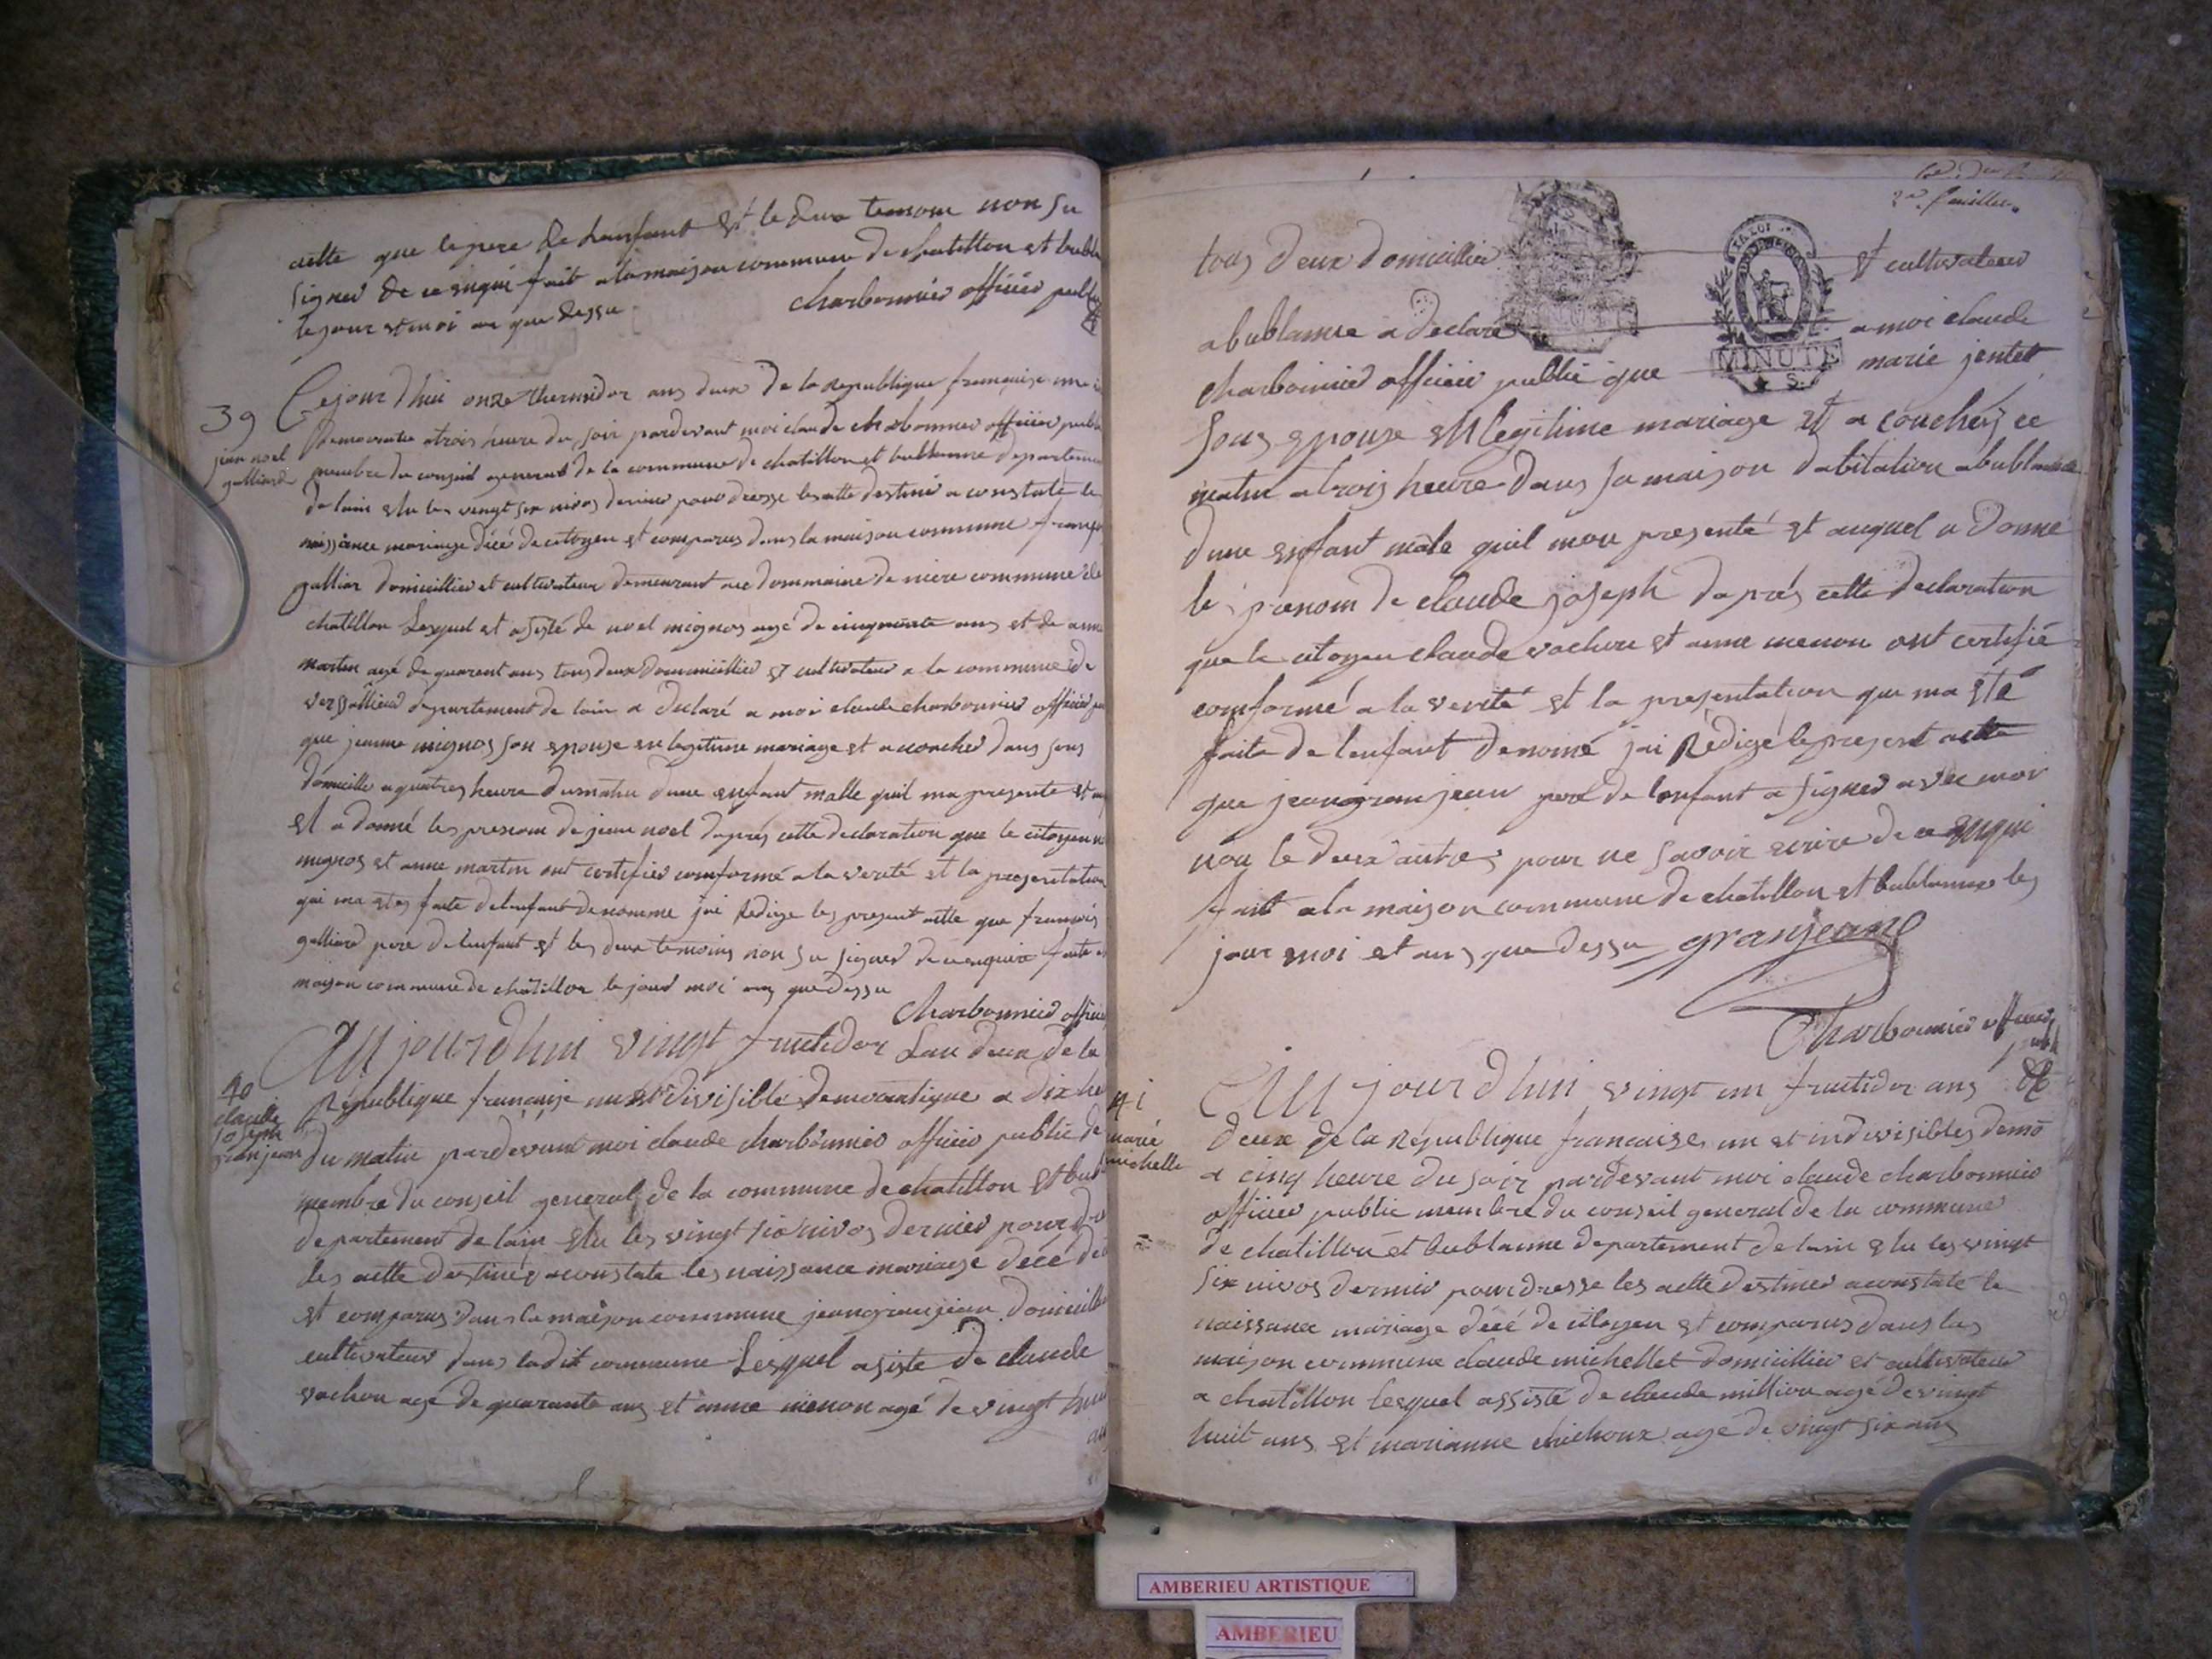 actte que lepere de lanfant et le deux temoin non su
signer de ce enqui fait a la maison commune de chatillon et bubla
le jour et moi an que dessu charbonnier officier public
39
jean noel
galliard
Cejourdhui onze thermidor ans deux de la republique française une i
democratie a trois heure du soir pardevant moi claude charbonnier officier public
membre du conseil general de la commune de chatillon et bublanne departement
de lain elu les vingt six nivos dernier pour dresse les actte destiné a constaté le
naissance mariage décé de citoyen et comparus dans la maison commune françois
galliar domicillier et cultivateur demeurant au dommaine de niere commune de
chatillon Lesquel et assisté de noel mignos agé de cinquante ans et de anne
martin agé de quarent ans tous deux domicillier et cultivateur a la commune de
versallieu departement de lain a declaré a moi claude charbonnier officier pu
que jeanne mignos son epouse en legitime mariage et acoucher dans sons
domicille a quatres heure du matin dune enfant malle quil ma presente et au
et a donné les prenom de jean noel daprés cette declaration que le citoyen n
mignos et anne martin ont certifier comformé a la verité et la presentation
qui ma etes faite de lenfant denomme jai Redige les present actte que francois
galliard pere de lenfant et les deux temoins non su signer de ce enquire faite a
maison commune de châtillon le jour moi ans que dessu
Charbonnier officier
40
claude
joseph
granjean
Aujourdhui vingt fructidor Lan deux de la
République française un et indivisible democratique a dix he
du matin pardevant moi claude charbonnier officier public de
membre du conseil general de la commune de chatillon et bub
departement de lain elu les vingt six nivos dernier pour dre
les actte destiné a constate les naissance mariage décé de
et comparus dans la maison commune jean granjean domicillie
cultivateur dans ladit commune Lesquel asiste de claude
vachon agé de quarante ans et anne menon agé de vingt huit
ans
2e feuillet
tous deux domicillier et cultivateur
a bublanne a declaré a moi claude
charbonnier officier public que marie jentet
sous epouse en legitime mariage et a couchés ce
matin a trois heure dans sa maison dabitation a bublanne
dune enfant mâle quil mou presenté et auquel a donné
le prenom de claude joseph daprés cette declaration
que le citoyen claude vachon et anne menon ont certifié
comformé a la verité et la presentation que ma eté
faite de lenfant denomé jai Rédigé le present actte
que jean granjean pere de lenfant a signer avec moi
non le deux autres pour ne savoir ecrire de ce enqui
fait a la maison commune de chatillon et bublanne les
jour moi et ans que dessu granjean
Charbonnier officier
public
MINUTE
41
marie
michelle
Aujourdhui vingt un fructidor ans
deux de la République française un et indivisibles demo
a cinq heure du soir pardevant moi claude charbonnier
officier public membre du conseil general de la commune
de chatillon et bublanne departement de lain elu les vingt
six nivos dernier pour dresse les actte destiner a constaté le
naissance mariage décé de citoyen et comparus dans las
maison commune claude michellet domicillier et cultivateur
a chatillon Lesquel assisté de claude million agé de vingt
huit ans et marianne chichoux agé de vingt six ans
AMBERIEU ARTISTIQUE
AMBERIEU